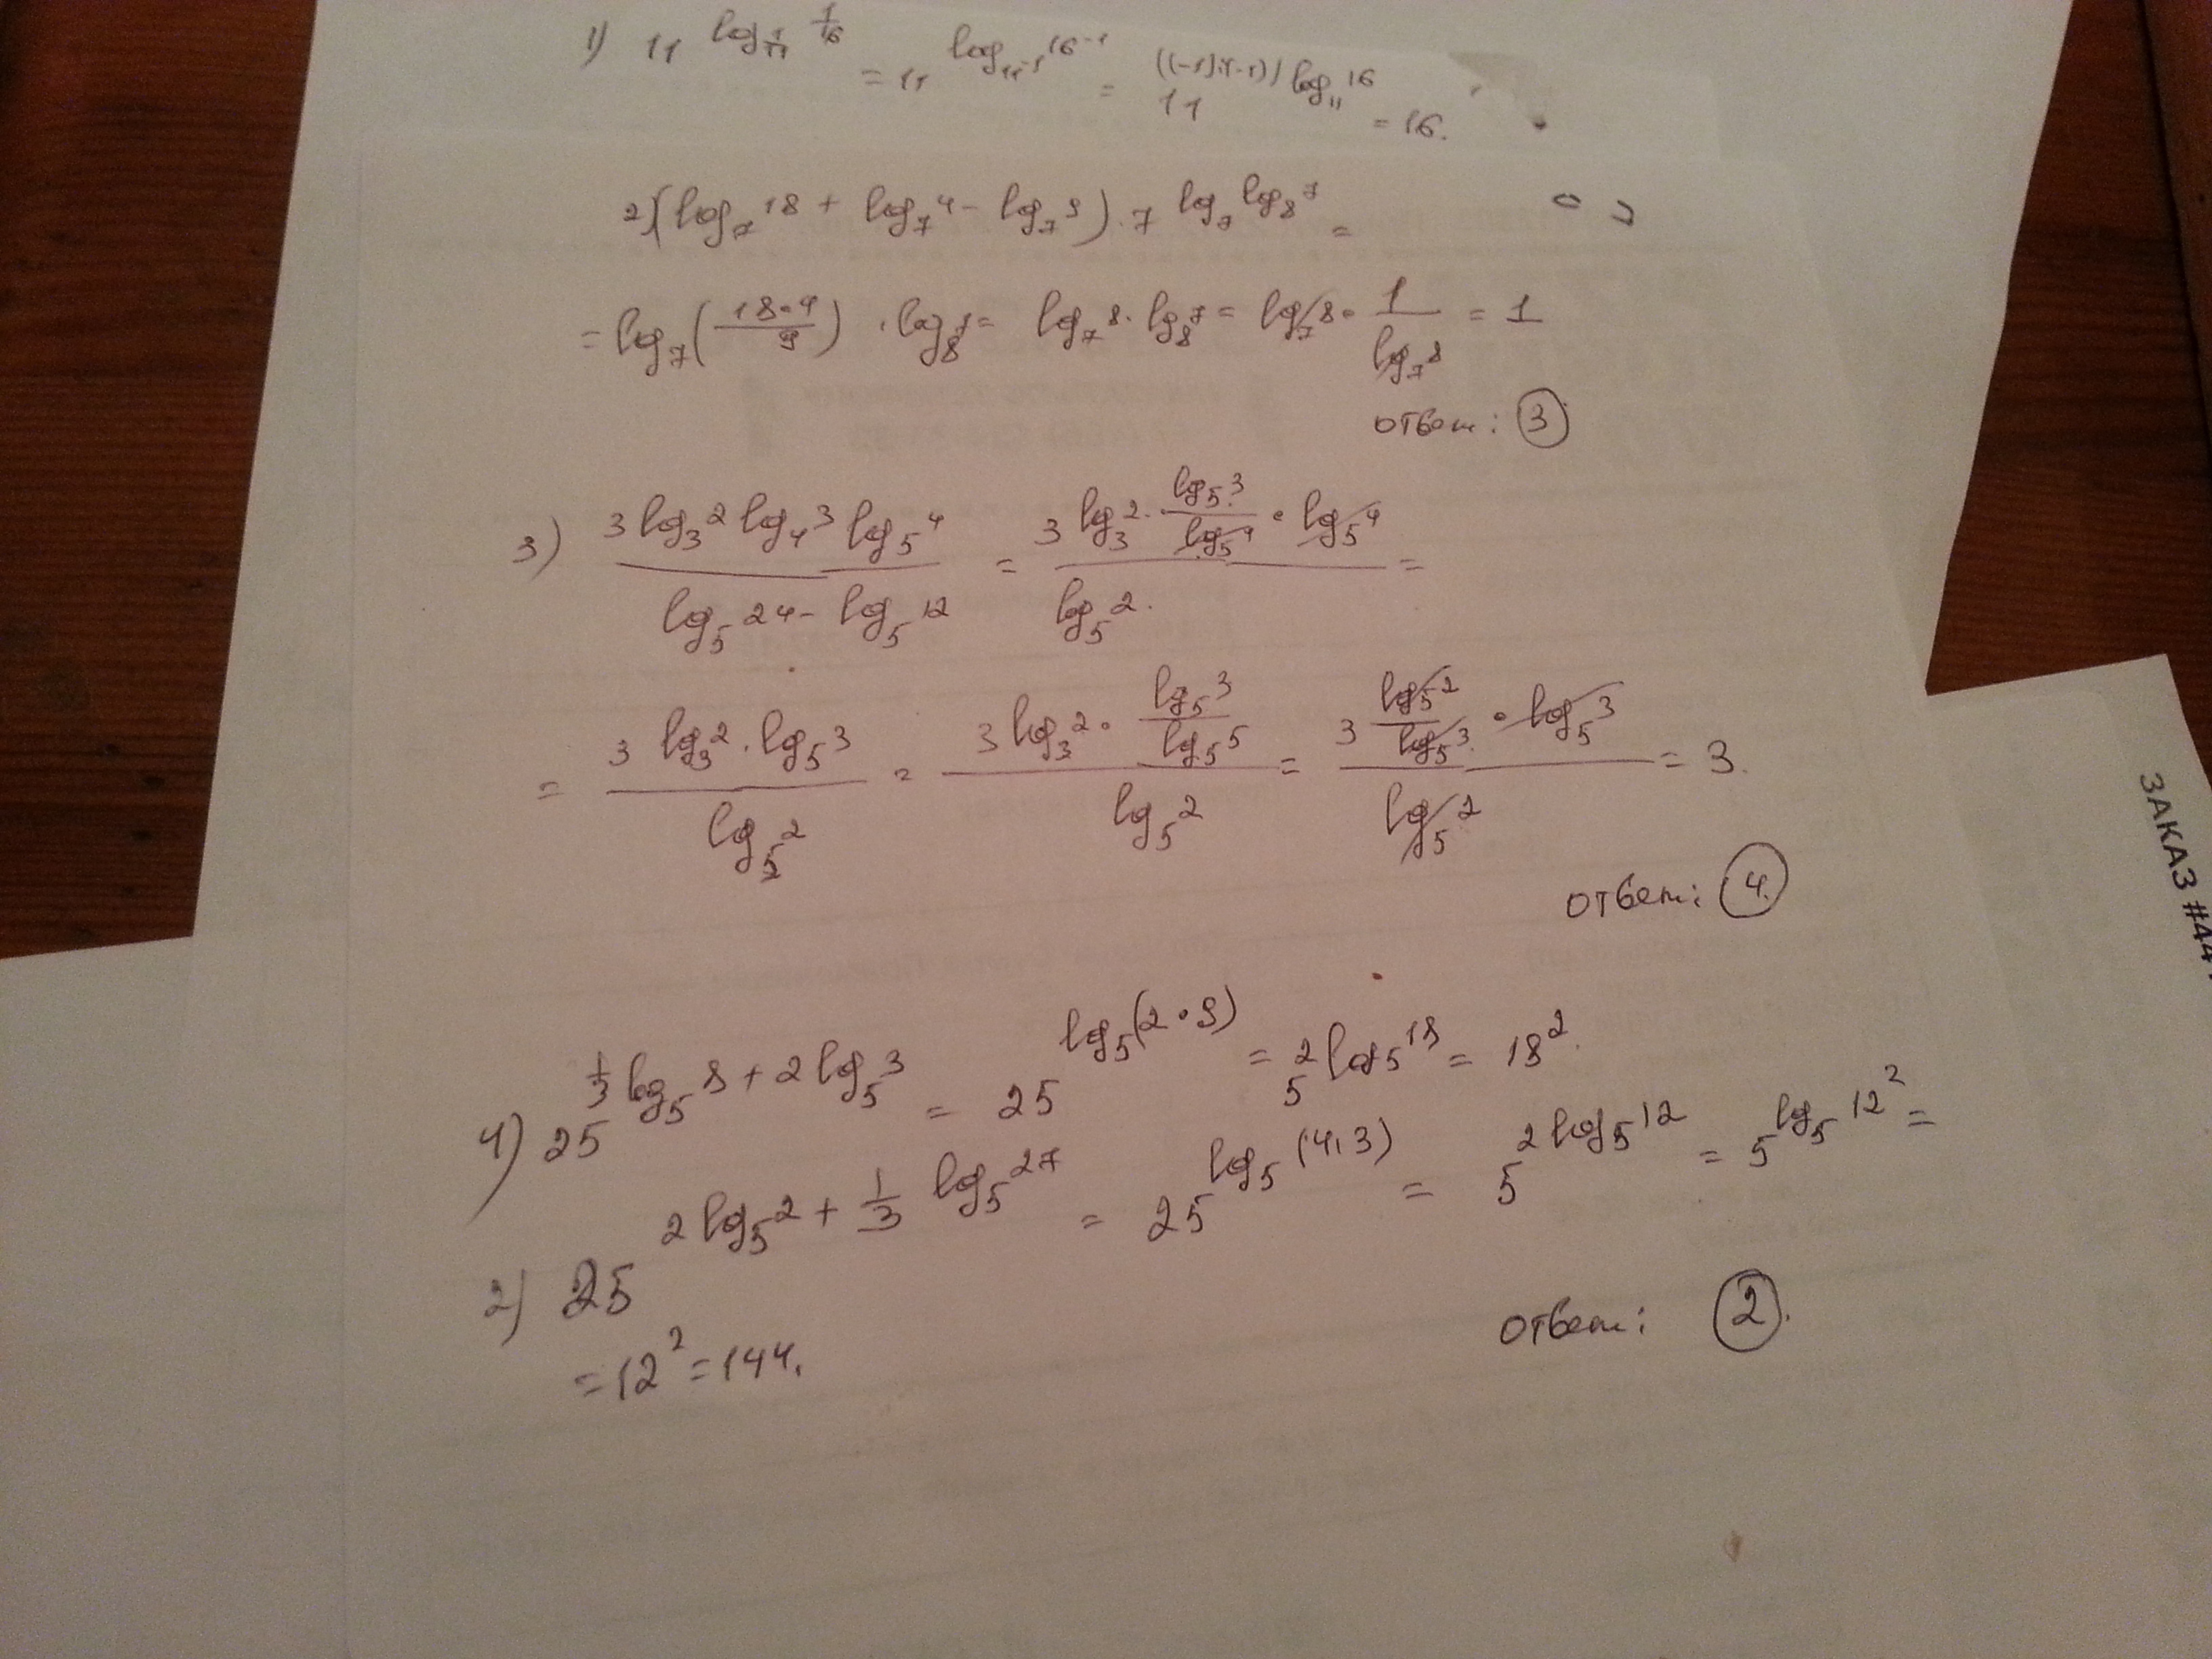 1) 11^(log_(1/11) 1/16) = 11^(log_(11^-1) 16^-1) = 11^(((-1):(-1)) log_11 16) = 16.
2) (log_7 18 + log_7 4 - log_7 9) · 7^(log_7 log_8 7) =
= log_7 (18·4/9) · log_8 7 = log_7 8 · log_8 7 = log_7 8 · 1/log_7 8 = 1
ответ: 3
3) (3 log_3 2 log_4 3 log_5 4)/(log_5 24 - log_5 12) = (3 log_3 2 · (log_5 3/log_5 4) · log_5 4)/(log_5 2.) =
= (3 log_3 2 · log_5 3)/(log_5 2) = (3 log_3 2 · (log_5 3/log_5 5))/(log_5 2) = (3 (log_5 2/log_5 3) · log_5 3)/(log_5 2) = 3.
ответ: 4.
4) 25^(1/3 log_5 8 + 2 log_5 3) = 25^(log_5 (2·9)) = 5^(2 log_5 18) = 18^2.
2) 25^(2 log_5 2 + 1/3 log_5 27) = 25^(log_5 (4·3)) = 5^(2 log_5 12) = 5^(log_5 12^2) =
= 12^2 = 144.
ответ: 2.
ЗАКАЗ #44